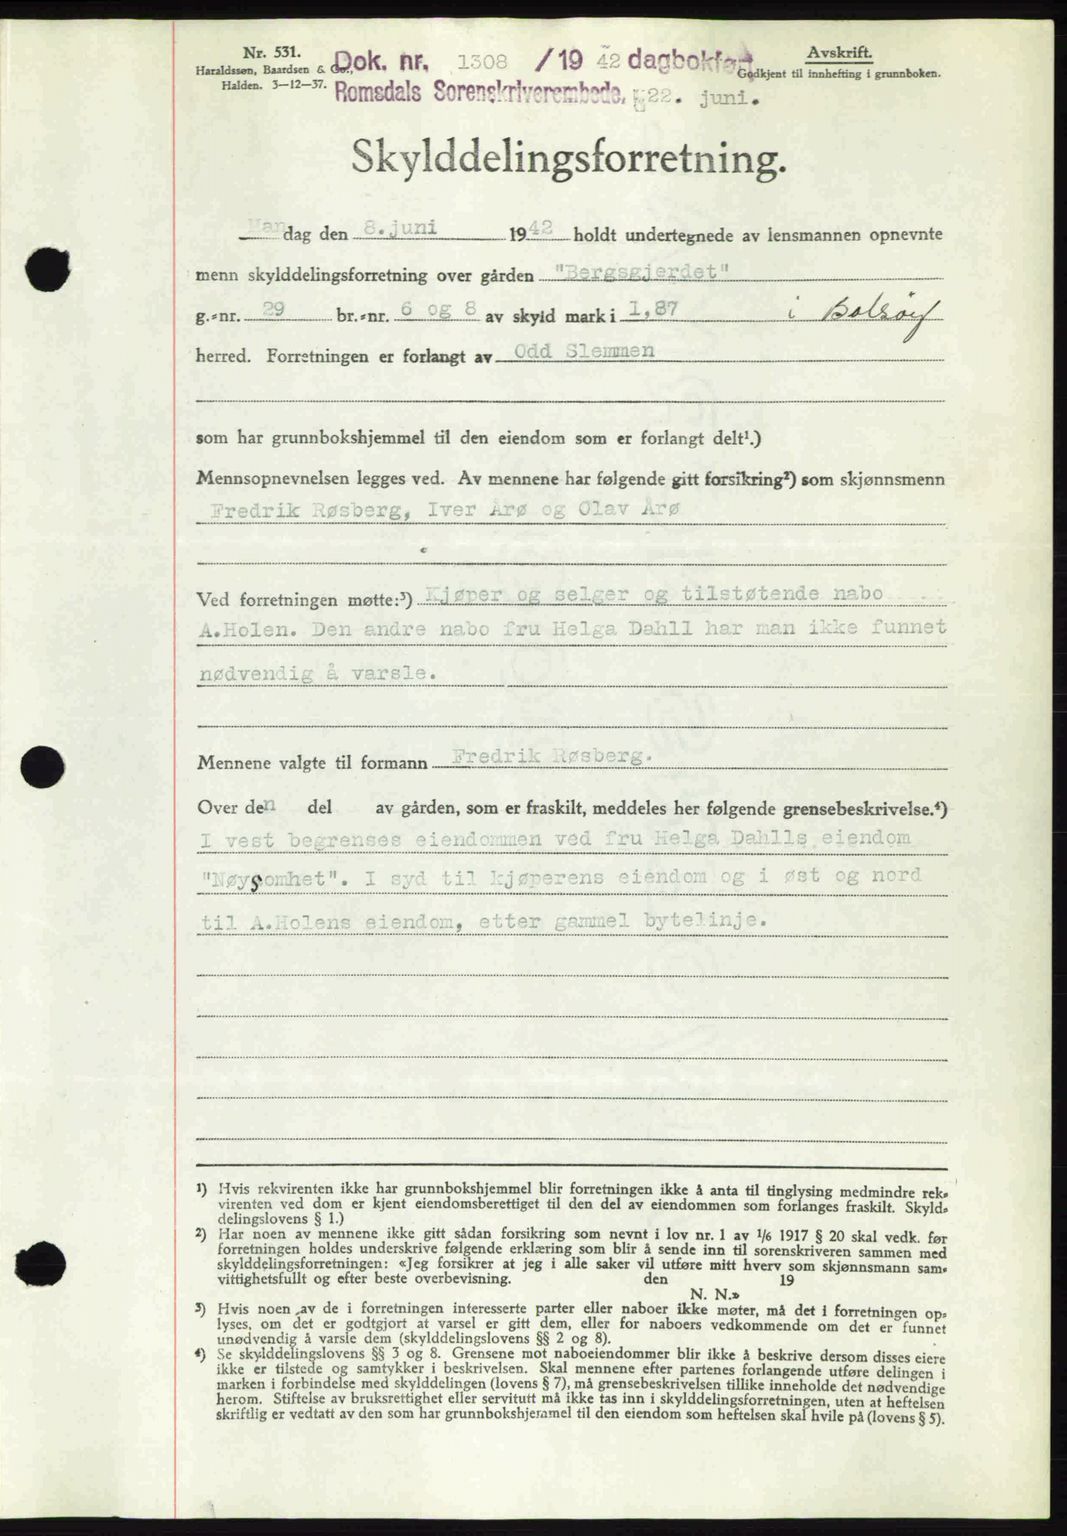 Nr. 531.
Haraldssøn, Baardsen & Co.,
Halden. 3-12-37.
Dok. nr. 1308 /19 42 dagbokført
Romsdals Sorenskriverembede, 22. juni.
Avskrift.
Godkjent til innhefting i grunnboken.
Skylddelingsforretning.
Mandag den 8.juni 1942 holdt undertegnede av lensmannen opnevnte
menn skylddelingsforretning over gården "Bergsgjerdet"
g.-nr. 29 br.-nr. 6 og 8 av skyld mark i 1,87 i Bolsøy
herred. Forretningen er forlangt av Odd Slemmen
som har grunnbokshjemmel til den eiendom som er forlangt delt¹.)
Mennsopnevnelsen legges ved. Av mennene har følgende gitt forsikring²) som skjønnsmenn
Fredrik Røsberg, Iver Årø og Olav Årø
Ved forretningen møtte:³) Kjøper og selger og tilstøtende nabo
A.Holen. Den andre nabo fru Helga Dahll har man ikke funnet
nødvendig å varsle.
Mennene valgte til formann Fredrik Røsberg.
Over den del av gården, som er fraskilt, meddeles her følgende grensebeskrivelse.⁴)
I vest begrenses eiendommen ved fru Helga Dahlls eiendom
"Nøysomhet". I syd til kjøperens eiendom og i øst og nord
til A.Holens eiendom, etter gammel bytelinje.
¹) Hvis rekvirenten ikke har grunnbokshjemmel blir forretningen ikke å anta til tinglysing medmindre rek-
virenten ved dom er kjent eiendomsberettiget til den del av eiendommen som forlanges fraskilt. Skyld-
delingslovens § 1.)
²) Har noen av mennene ikke gitt sådan forsikring som nevnt i lov nr. 1 av 1/6 1917 § 20 skal vedk. før
forretningen holdes underskrive følgende erklæring som blir å sende inn til sorenskriveren sammen med
skylddelingsforretningen: «Jeg forsikrer at jeg i alle saker vil utføre mitt hverv som skjønnsmann sam-
vittighetsfullt og efter beste overbevisning. den 19
N. N.»
³) Hvis noen av de i forretningen interesserte parter eller naboer ikke møter, må det i forretningen op-
lyses, om det er godtgjort at varsel er gitt dem, eller for naboers vedkommende om det er funnet
unødvendig å varsle dem (skylddelingslovens §§ 2 og 8).
⁴) Se skylddelingslovens §§ 3 og 8. Grensene mot naboeiendommer blir ikke å beskrive dersom disses eiere
ikke er tilstede og samtykker i beskrivelsen. Skal mennene efter partenes forlangende utføre delingen i
marken i forbindelse med skylddelingen (lovens § 7), må grensebeskrivelsen tillike inneholde det nødvendige
herom. Stiftelse av bruksrettighet eller servitutt må ikke tas inn i skylddelingsforretningen, uten at heftelsen
skriftlig er vedtatt av den som har grunnbokshjemmel til den eiendom som heftelsen skal hvile på (lovens § 5).